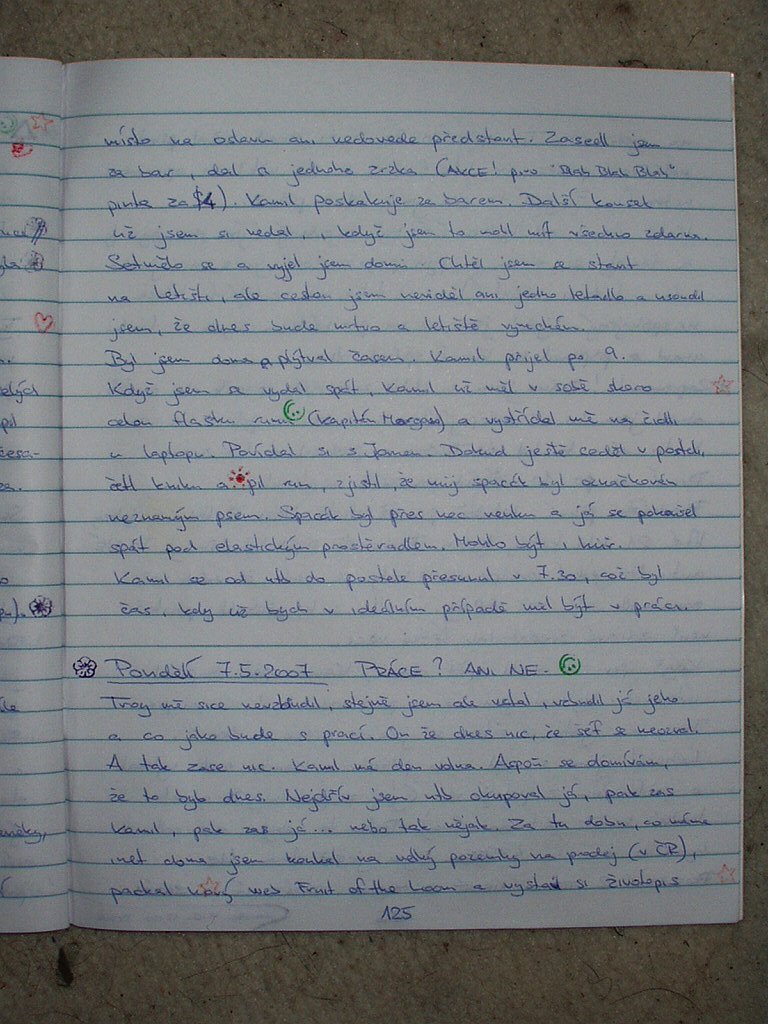 místo na oslavu ani nedovede představit. Zasedl jsem
za bar, dal si jednoho zrzka (AKCE! pivo "Blah Blah Blah"
pinta za $4). Kamil poskakuje za barem. Další kousek
už jsem si nedal, když jsem to mohl mít všechno zdarma.
Setmělo se a vyjel jsem domů. Chtěl jsem se stavit
na letišti, ale cestou jsem neviděl ani jedno letadlo a usoudil
jsem, že dnes bude mrtvo a letiště vynechám.
Byl jsem doma a plýtval časem. Kamil přijel po 9.
Když jsem se vydal spát, Kamil už měl v sobě skoro
celou flašku rumu (Kapitán Morgan) a vystřídal mě na židli
u laptopu. Povídal si s Jamen. Dokud ještě seděl v posteli,
četl knihu a pil rum, zjistil, že můj spacák byl označkován
neznámým psem. Spacák byl přes noc venku a já se pokoušel
spát pod elastickým prostěradlem. Mohlo být i hůř.
Kamil se od ntb do postele přesunul v 7.30, což byl
čas, kdy už bych v ideálním případě měl být v práci.
Pondělí 7.5.2007 PRÁCE? ANI NE.
Troy mě sice nevzbudil, stejně jsem ale vstal, vzbudil já jeho
a co jako bude s prací. On že dnes nic, že šéf se neozval.
A tak zase nic. Kamil má den volna. Aspoň se domívám,
že to bylo dnes. Nejdřív jsem ntb okupoval já, pak zas
Kamil, pak zas já... nebo tak nějak. Za tu dobu, co máme
inet doma jsem koukal na volný pozemky na prodej (v ČR),
páchal nový web Fruit of the Loom a vystavil si životopis
125